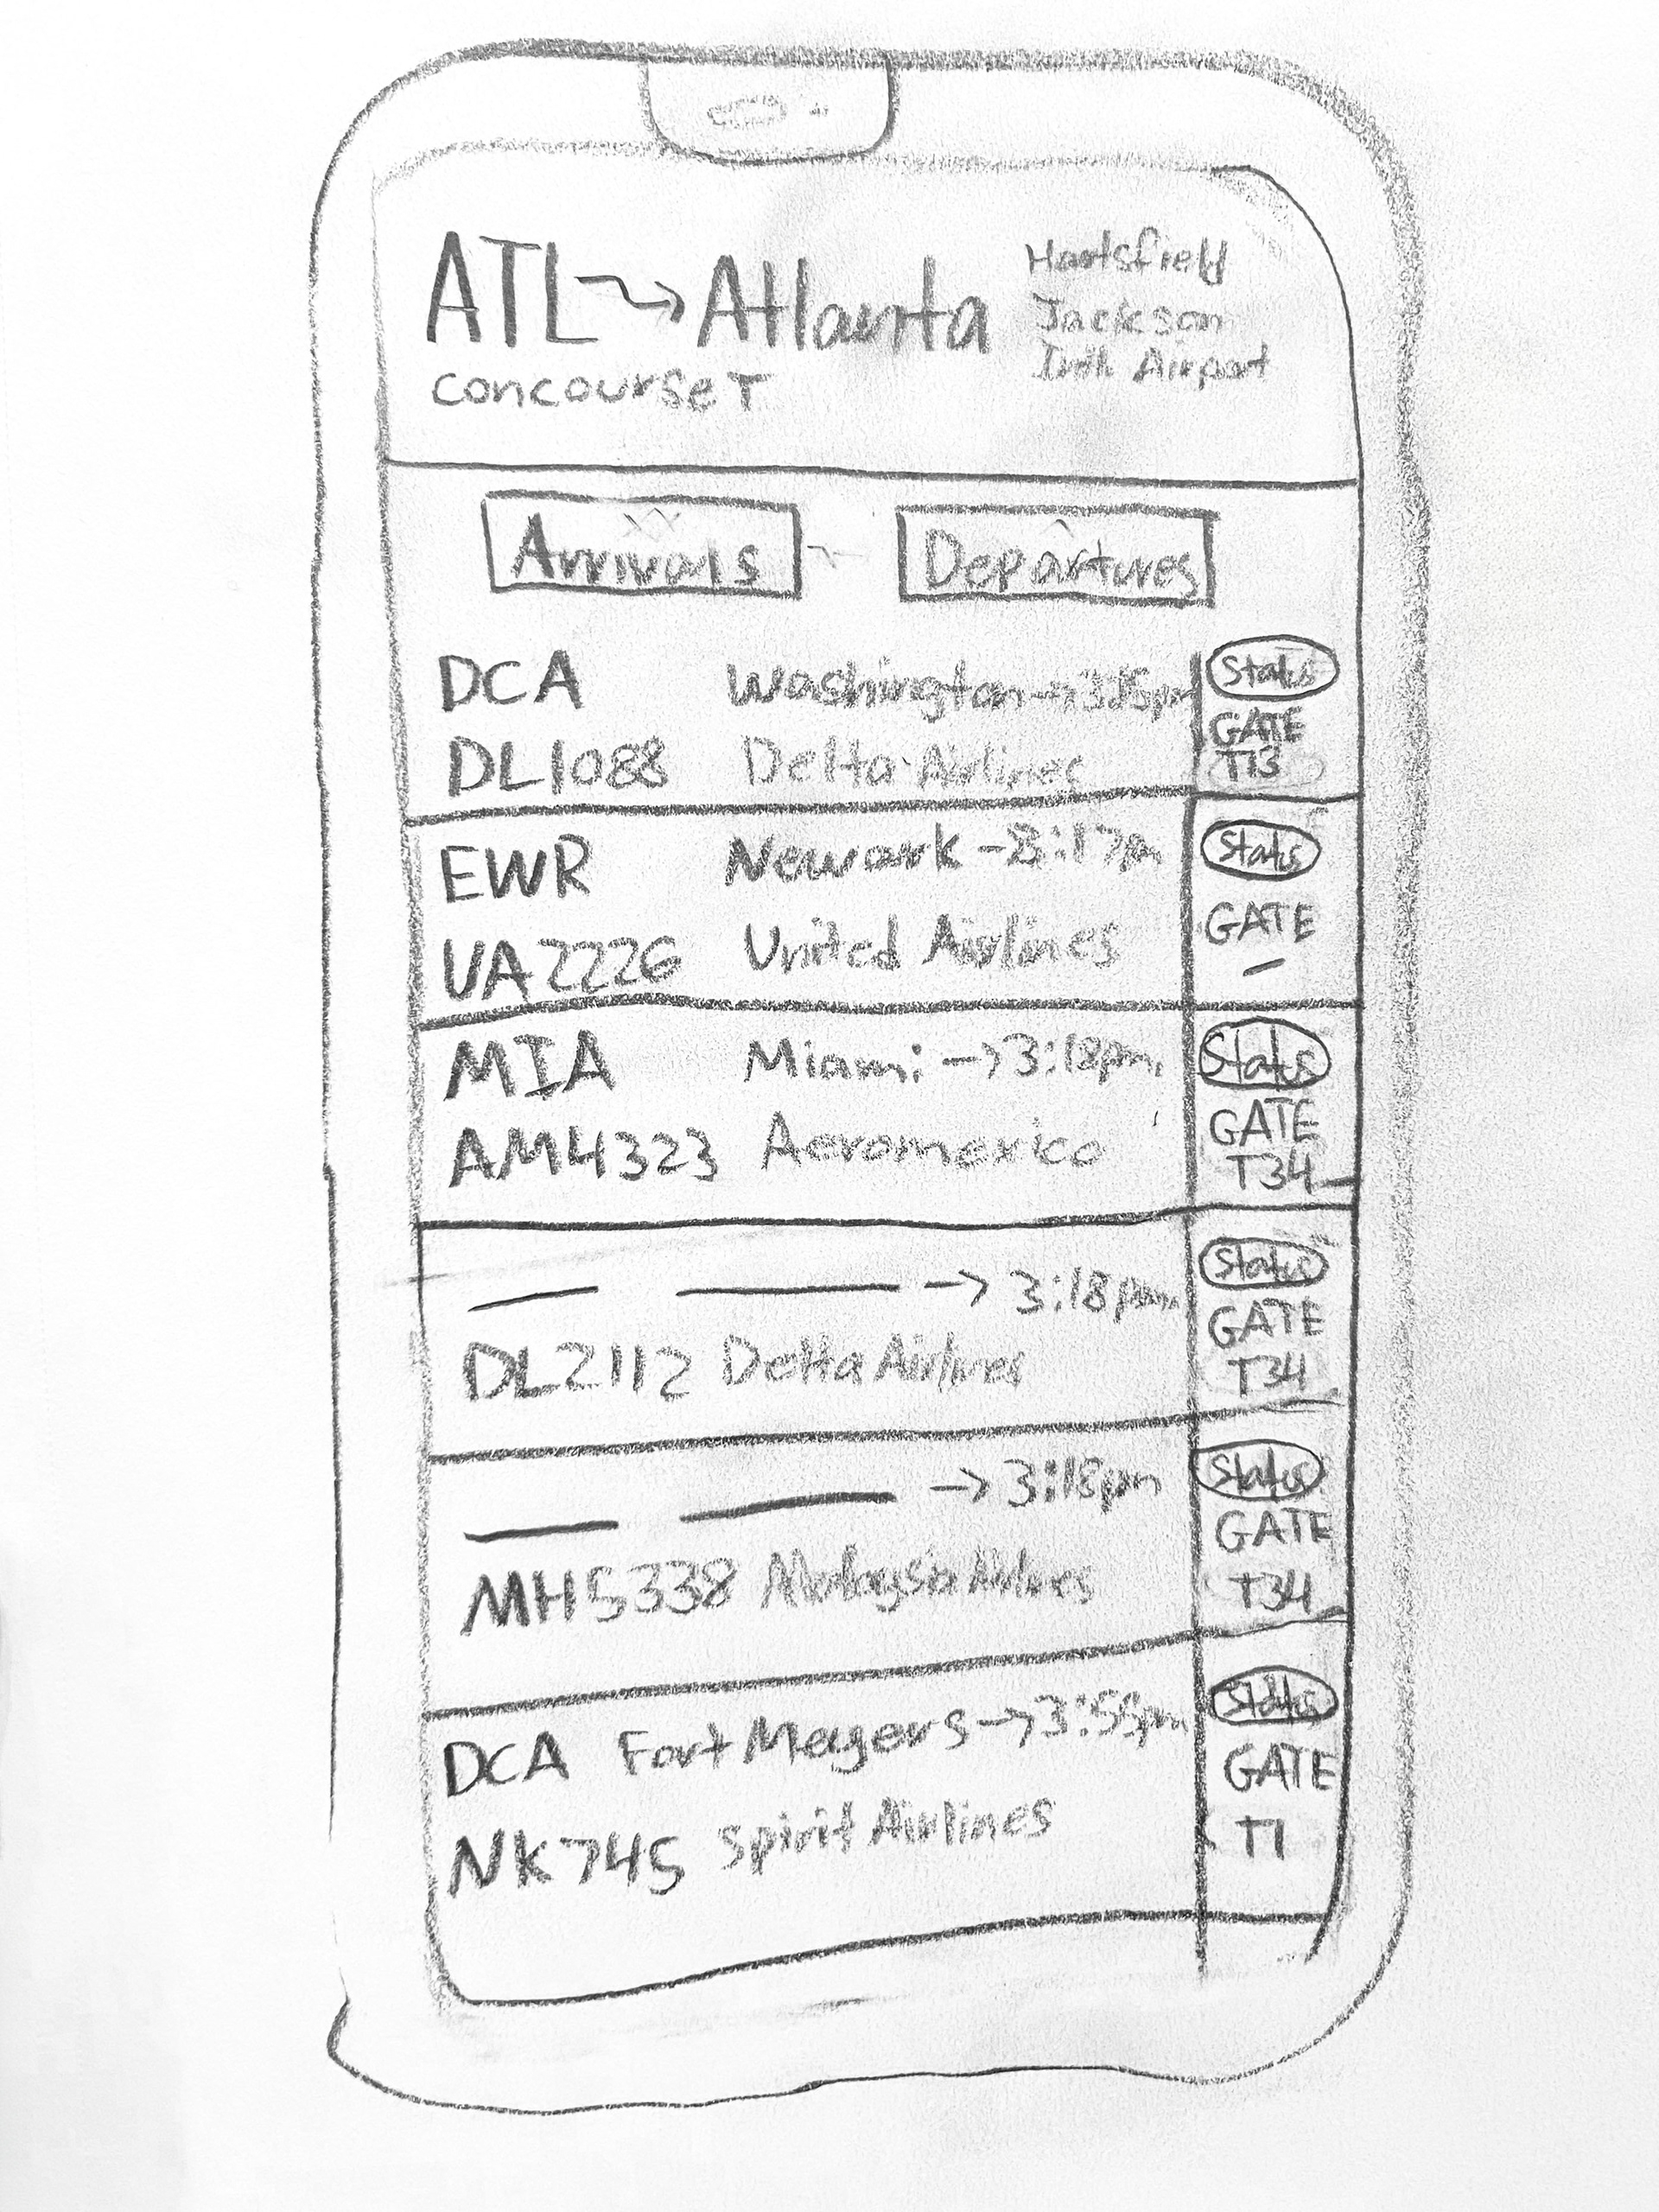 ATL → Atlanta
Concourse T
Hartsfield
Jackson
Intl Airport
Arrivals
Departures
DCA Washington → 3:15pm
DL1088 Delta Airlines
Status
GATE
T13
EWR Newark - 3:17pm
UA2226 United Airlines
Status
GATE
-
MIA Miami → 3:18pm
AM4323 Aeromexico
Status
GATE
T34
→ 3:18pm
DL2112 Delta Airlines
Status
GATE
T34
→ 3:18pm
MH5338 Malaysia Airlines
Status
GATE
T34
DCA Fort Meyers → 3:55pm
NK745 Spirit Airlines
Status
GATE
T1